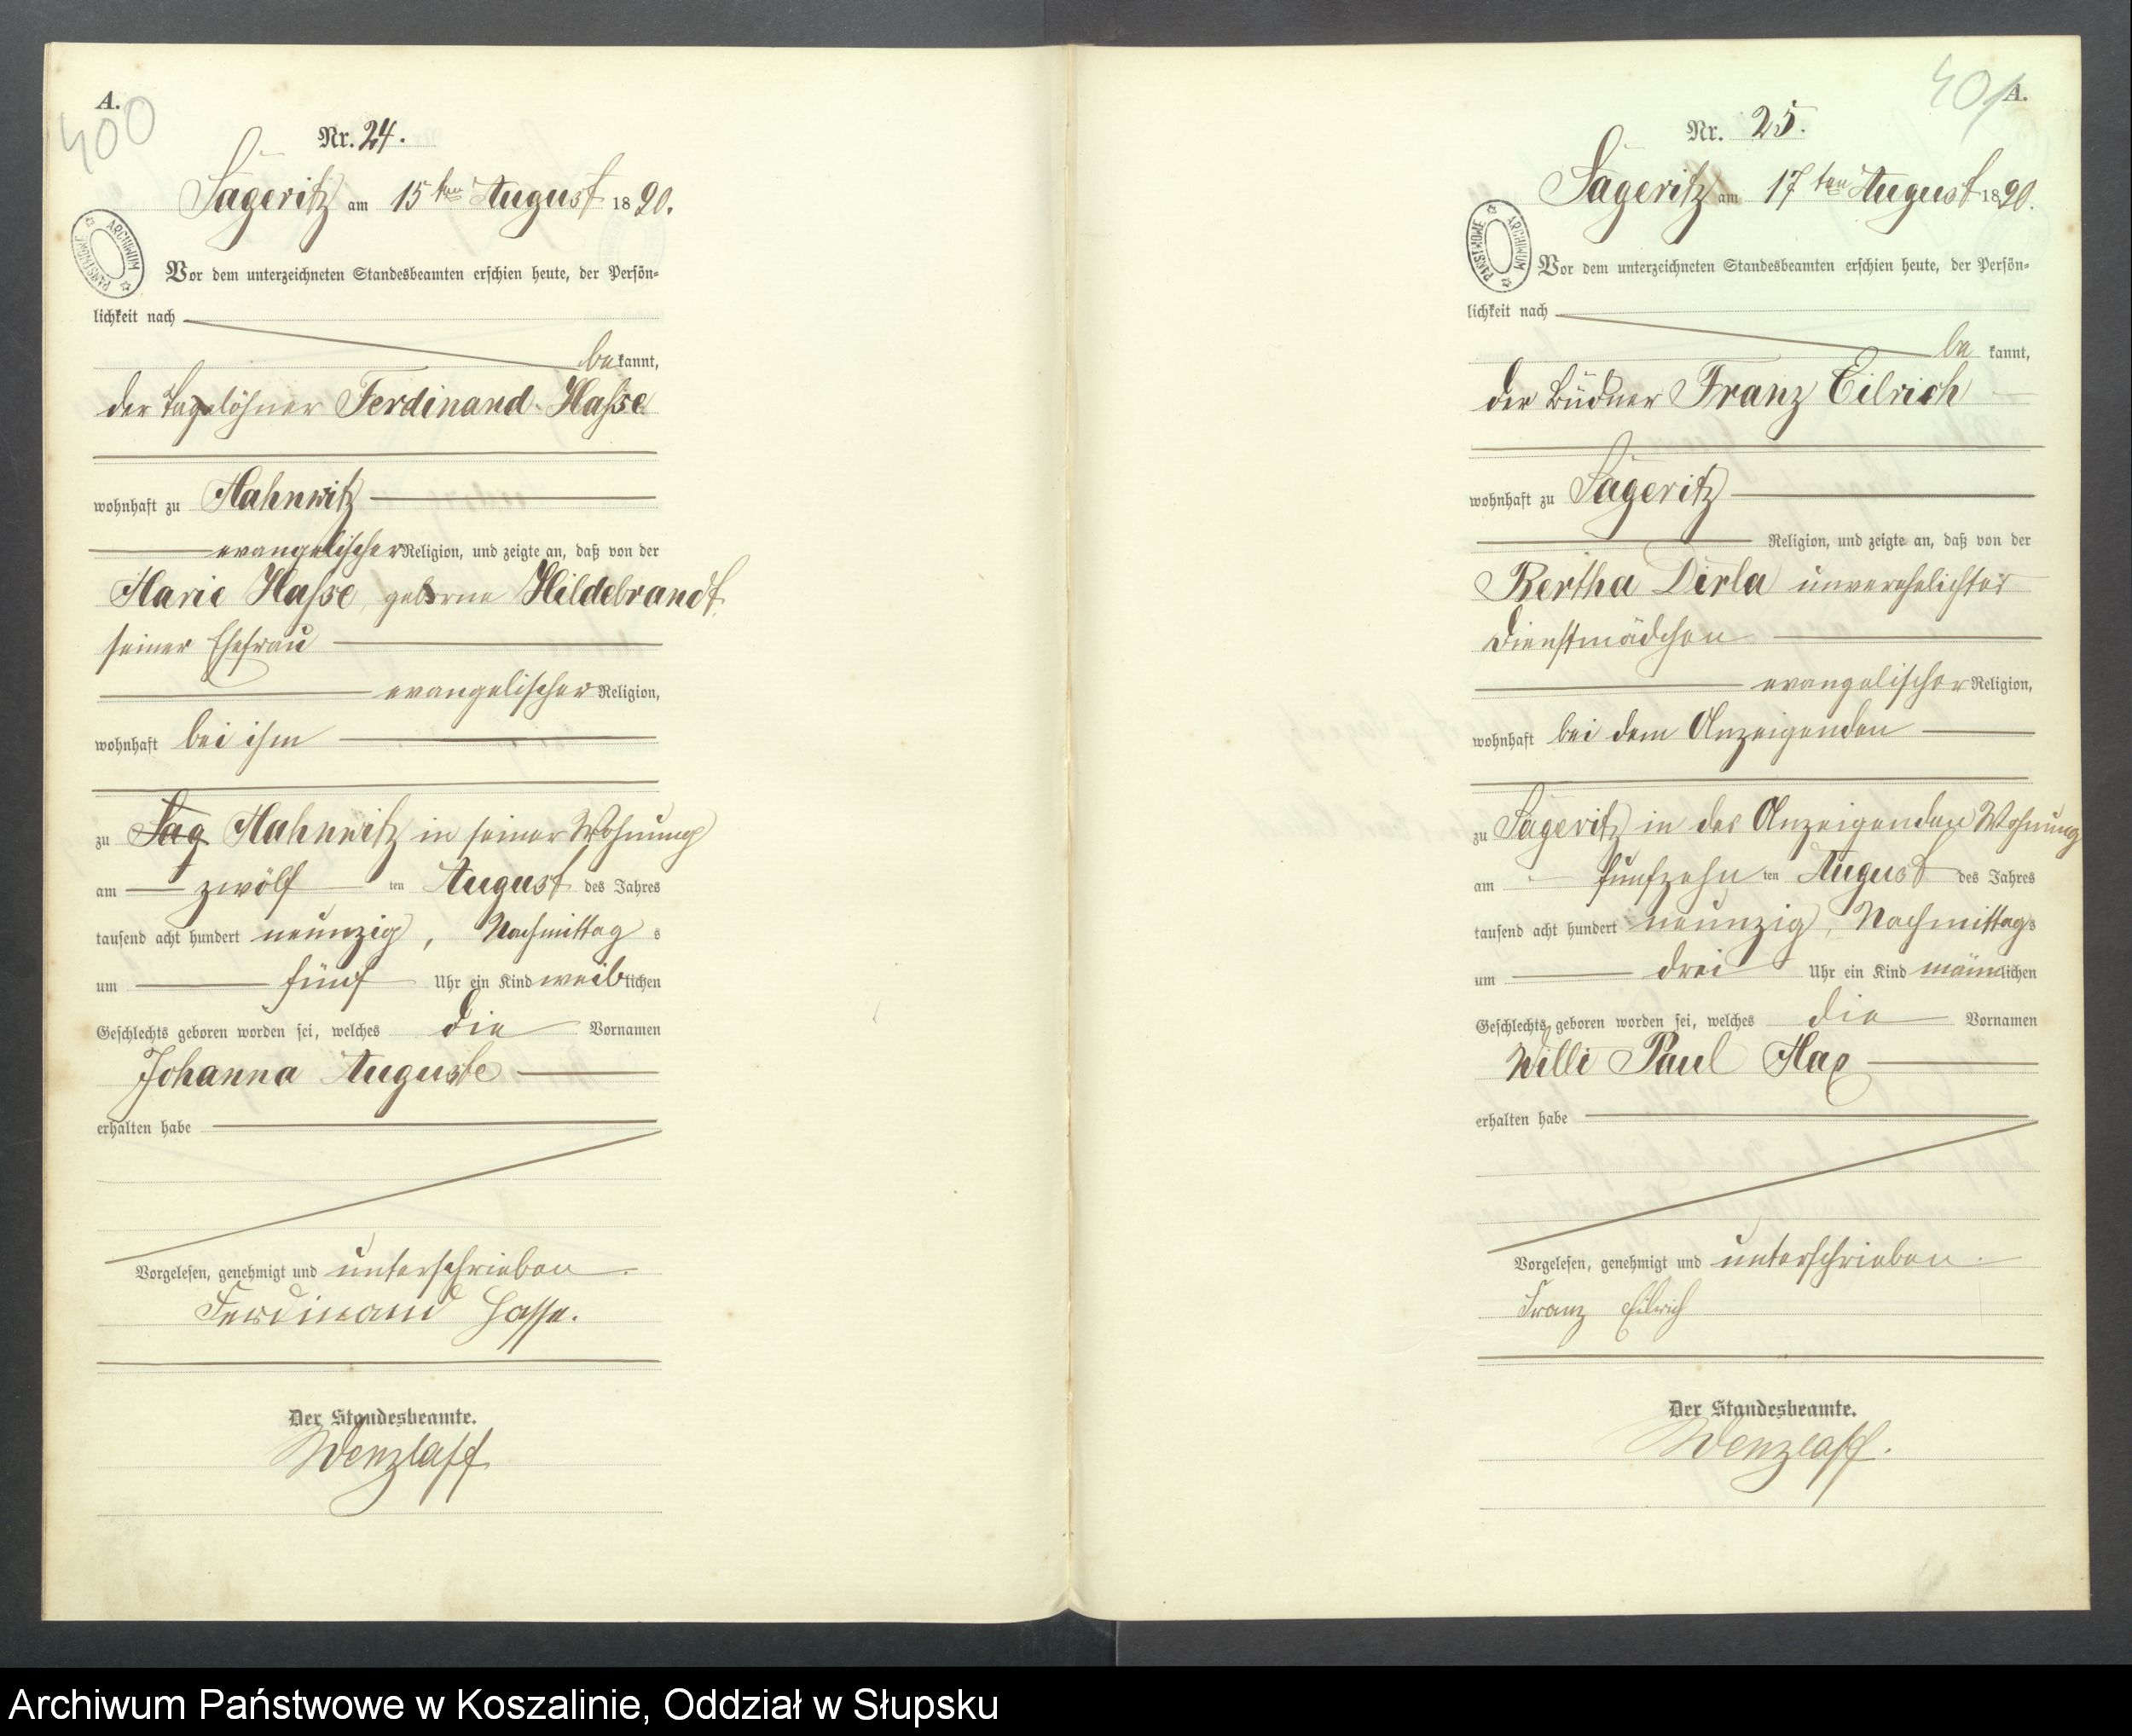 A.
400
Nr. 24.
Sageritz am 15ten August 1890.
ARCHIWUM PAŃSTWOWE
Vor dem unterzeichneten Standesbeamten erschien heute, der Persön-
lichkeit nach
be kannt,
der Tagelöhner Ferdinand Hasse
wohnhaft zu Mahnwitz
evangelischer Religion, und zeigte an, daß von der
Marie Hasse, geborne Hildebrandt
seiner Ehefrau
evangelischer Religion,
wohnhaft bei ihm
zu Sag Mahnwitz in seiner Wohnung
am zwölf ten August des Jahres
tausend acht hundert neunzig, Nachmittag s
um fünf Uhr ein Kind weiblichen
Geschlechts geboren worden sei, welches die Vornamen
Johanna Auguste
erhalten habe
Vorgelesen, genehmigt und unterschrieben.
Ferdinand Hasse.
Der Standesbeamte.
Wenzlaff
401
A.
Nr. 25.
Sageritz am 17ten August 1890.
ARCHIWUM PAŃSTWOWE
Vor dem unterzeichneten Standesbeamten erschien heute, der Persön-
lichkeit nach
be kannt,
der Büdner Franz Eilrich
wohnhaft zu Sageritz
Religion, und zeigte an, daß von der
Bertha Dirla unverehelichter
Dienstmädchen
evangelischer Religion,
wohnhaft bei dem Anzeigenden
zu Sageritz in des Anzeigenden Wohnung
am fünfzehn ten August des Jahres
tausend acht hundert neunzig, Nachmittags
um drei Uhr ein Kind männlichen
Geschlechts geboren worden sei, welches die Vornamen
Willi Paul Max
erhalten habe
Vorgelesen, genehmigt und unterschrieben.
Franz Eilrich
Der Standesbeamte.
Wenzlaff.
Archiwum Państwowe w Koszalinie, Oddział w Słupsku